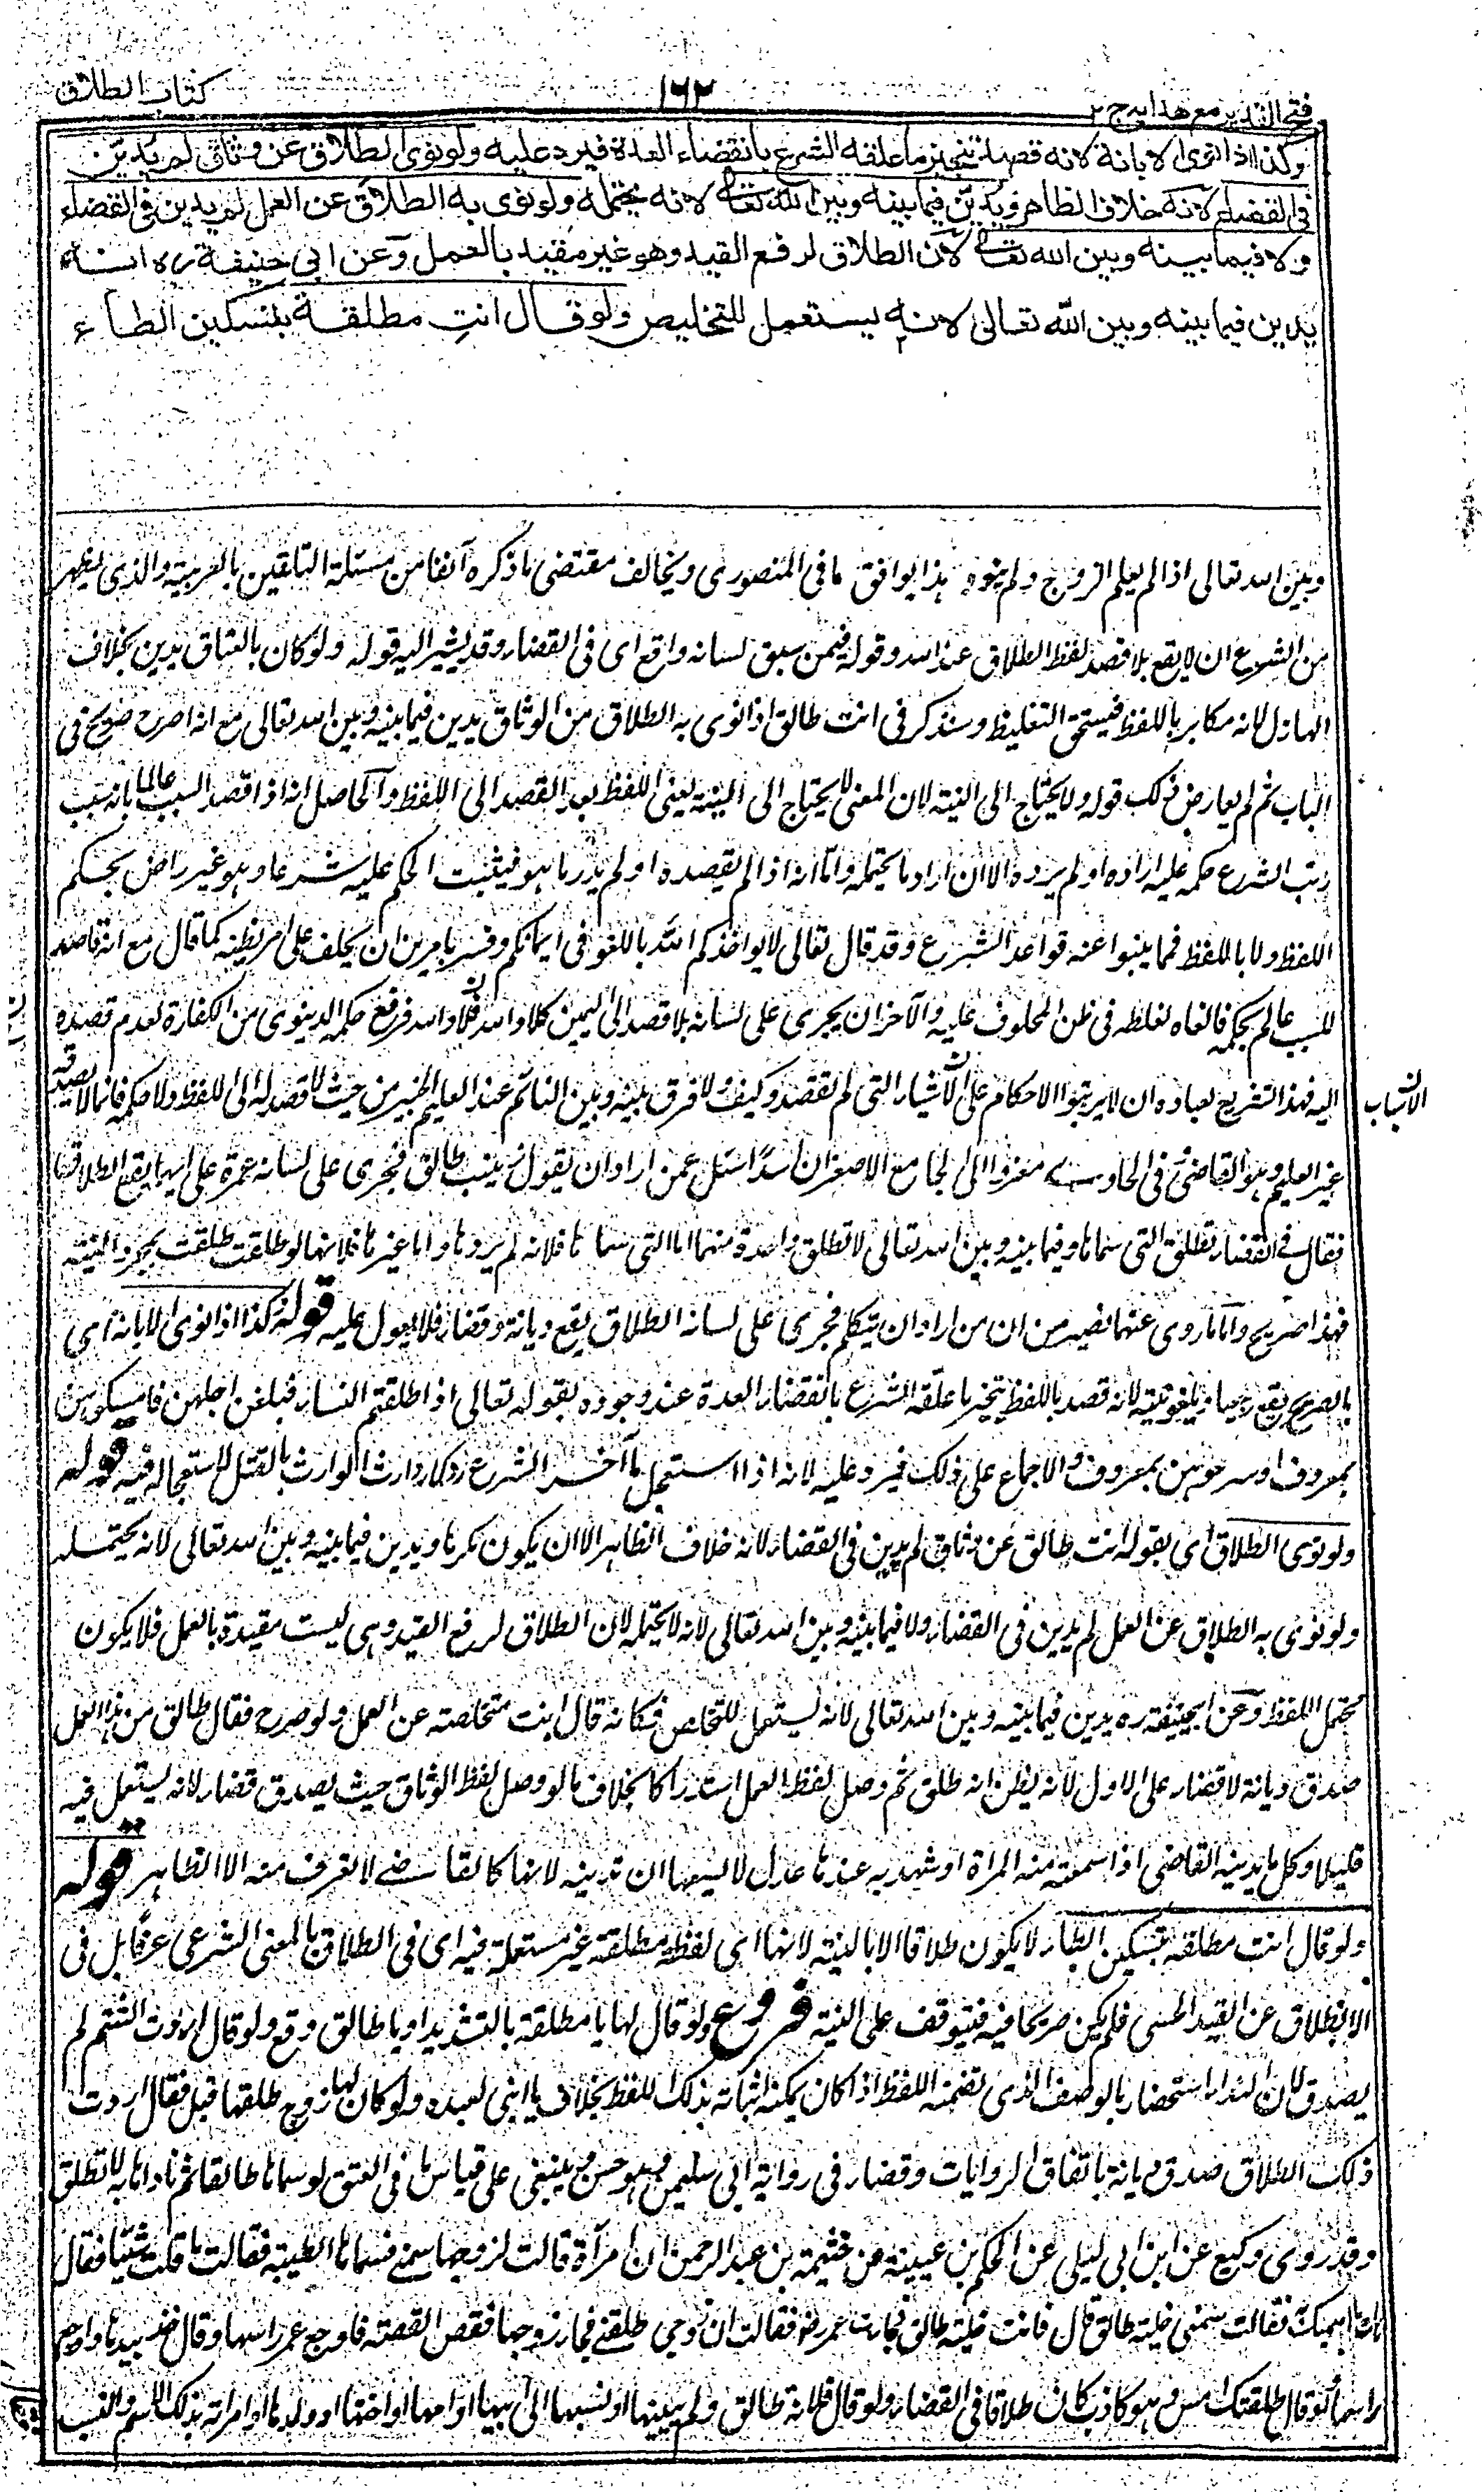 فتح القدير مع هدايه ج ٢
١٦٢
كتاب الطلاق
وكذا اذا نوى الابانة لانه قصد تنجيز ما علقه الشرع بانقضاء العدة فيرد عليه ولو نوى الطلاق عن وثاق لم يدين
فى القضاء لانه خلاف الظاهر ويدين فيما بينه وبين الله تعالى لانه يحتمله ولو نوى به الطلاق عن العمل لم يدين فى القضاء
ولا فيما بينه وبين الله تعالى لان الطلاق لرفع القيد وهو غير مقيد بالعمل وعن ابى حنيفة ره انه
يدين فيما بينه وبين الله تعالى لانه يستعمل للتخليص ولو قال انتِ مطلقة بتسكين الطاء
وبين اسد تعالى اذا لم يعلم الزوج ولم ينوه هذا يوافق ما فى المنصورى ويخالف مقتضى ما ذكره آنفا من مسئلة التلقين بالعربية والذى يظهر
من الشرع ان لا يقع بلا قصد لفظ الطلاق عند الله وقوله فيمن سبق لسانه واقع اى فى القضاء وقد يشير اليه قوله ولو كان بالعتاق يدين بخلاف
الهازل لانه مكابر باللفظ فيستحق التغليظ وسنذكر فى انت طالق اذا نوى به الطلاق من الوثاق يدين فيما بينه وبين الله تعالى مع انه اصرح صريح فى
الباب ثم لم يعارض ذلك قوله ولا يحتاج الى النية لان المعنى لا يحتاج الى النية يعنى اللفظ بعد القصد الى اللفظ والحاصل انه اذا قصد السبب عالما بانه سبب
رتب الشرع حكمه عليه اراده او لم يرده الا ان اراد ما يحتمله واما انه اذا لم يقصده او لم يدر ما هو فيثبت الحكم عليه شرعا وهو غير راض بحكم
اللفظ ولا باللفظ فمما ينبوا عنه قواعد الشرع وقد قال تعالى لا يواخذكم الله باللغو فى ايمانكم وفسر بامرين ان يحلف على امر يظنه كما قال مع انه قاصد
للسبب عالم بحكمه فالغاه لغلطه فى ظن المحلوف عليه والآخر ان يجرى على لسانه بلا قصد الى اليمين كلا والله بلى والله فرفع حكمه الدنيوى من الكفارة لعدم قصده
اليه فهذا التشريع لعباده ان لا يرتبوا الاحكام على الاشياء التى لم تقصد وكيف ولا فرق بينه وبين النائم عند العليم الخبير من حيث لا قصد له الى اللفظ ولا حكمه فانما لا يصدقه
الاسباب
غير العليم وهو القاضى وفى الحاوى معزوا الى الجامع الاصغر ان اسدا سئل عمن اراد ان يقول زينب طالق فجرى على لسانه عمرة على ايهما يقع الطلاق
فقال فى القضاء تطلق التى سماها وفيما بينه وبين الله تعالى لا تطلق واحدة منهما اما التى سماها فلانه لم يردها واما غيرها فلانها لو طلقت طلقت بمجرد النية
فهذا صريح واما ما روى عنهما نصير من ان من اراد ان يتكلم فجرى على لسانه الطلاق يقع ديانة وقضاء فلا يعول عليه قوله وكذا اذا نوى الابانة اى
بالصريح يقع رجعيا ويلغو نيته لانه قصد باللفظ تنجيز ما علقه الشرع بانقضاء العدة عند وجوده بقوله تعالى اذا طلقتم النساء فبلغن اجلهن فامسكوهن
بمعروف او سرحوهن بمعروف والاجماع على ذلك فيرد عليه لانه اذا استعجل ما آخره الشرع رد كارث الوارث بالقتل لاستعجاله فيه قوله
ولو نوى الطلاق اى بقوله انت طالق عن وثاق لم يدين فى القضاء لانه خلاف الظاهر الا ان يكون مكرها ويدين فيما بينه وبين الله تعالى لانه يحتمله
ولو نوى به الطلاق عن العمل لم يدين فى القضاء ولا فيما بينه وبين الله تعالى لانه لا يحتمله لان الطلاق لرفع القيد وهى ليست مقيدة بالعمل فلا يكون
محتمل اللفظ وعن ابيحنيفة ره يدين فيما بينه وبين الله تعالى لانه يستعمل للتخلص فكانه قال انت متخلصة عن العمل ولو صرح فقال طالق من هذا العمل
صدق ديانة لا قضاء على الاول لانه يظن انه طلق ثم وصل لفظ العمل استدراكا بخلاف ما لو وصل لفظ الوثاق حيث يصدق قضاء لانه يستعمل فيه
قليلا وكل ما يدينه القاضى اذا سمعته منه المراة او شهد به عندها عدل لا يسعها ان تدينه لانها كالقاضى لا تعرف منه الا الظاهر قوله
ولو قال انت مطلقة بتسكين الطاء لا يكون طلاقا الا بالنية لانها اى لفظه مطلقة غير مستعملة فيه اى فى الطلاق بالمعنى الشرعى عرفا بل فى
الانطلاق عن القيد الحسى فلم يكن صريحا فيه فتيوقف على النية فروع ولو قال لها يا مطلقة بالتشديد او يا طالق وقع ولو قال اردت الشتم لم
يصدق لان النداء استحضار بالوصف الذى تضمنه اللفظ اذا كان يمكنه اثباته بذلك اللفظ بخلاف يا ابنى لعبده ولو كان لها زوج طلقها قبل فقال اردت
ذلك الطلاق صدق ديانة باتفاق الروايات وقضاء فى رواية ابى سليمن وهو حسن وينبغى على قياس ما فى العتق لو سماها طالقا ثم ناداها به لا تطلق
وقد روى وكيع عن ابن ابى ليلى عن الحكم بن عيينة عن خثيمة بن عبد الرحمن ان امرآة قالت لزوجها سمنى فسماها الطيبة فقالت ما قلت شيئا فقال
هات ما اسميك به فقالت سمنى خلية طالق قال فانت خلية طالق فجاءت عمر رض فقالت ان زوجى طلقنى فجاء زوجها فقص القصة فاوجع عمر راسها وقال خذ بيدها واوجع
راسها ولو قال طلقتك امس وهو كاذب كان طلاقا فى القضاء ولو قال فلانة طالق ولم يبينها او نسبها الى ابيها او امها او اختها او ولدها او امراته بذلك الاسم والنسب